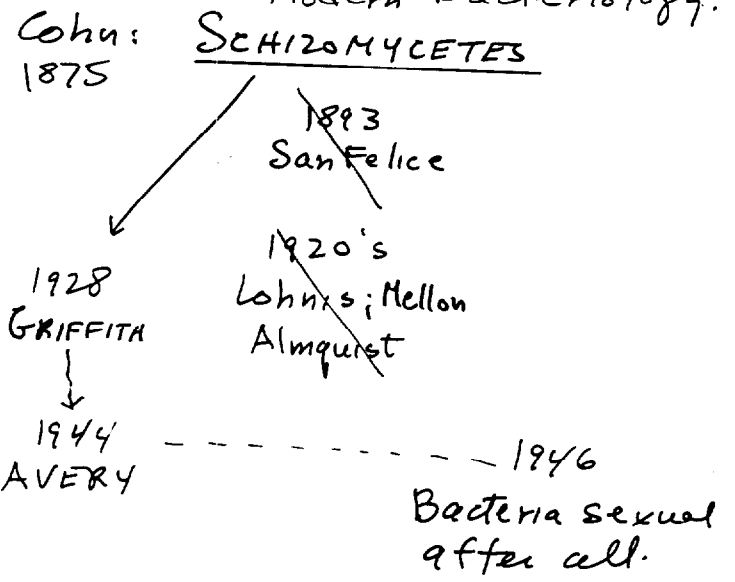 Modern Bacteriology.
Cohn: SCHIZOMYCETES
1875
1893
San Felice
1920's
Lohnis; Mellon
Almquist
1928
GRIFFITH
1944
AVERY
1946
Bacteria sexual
after all.